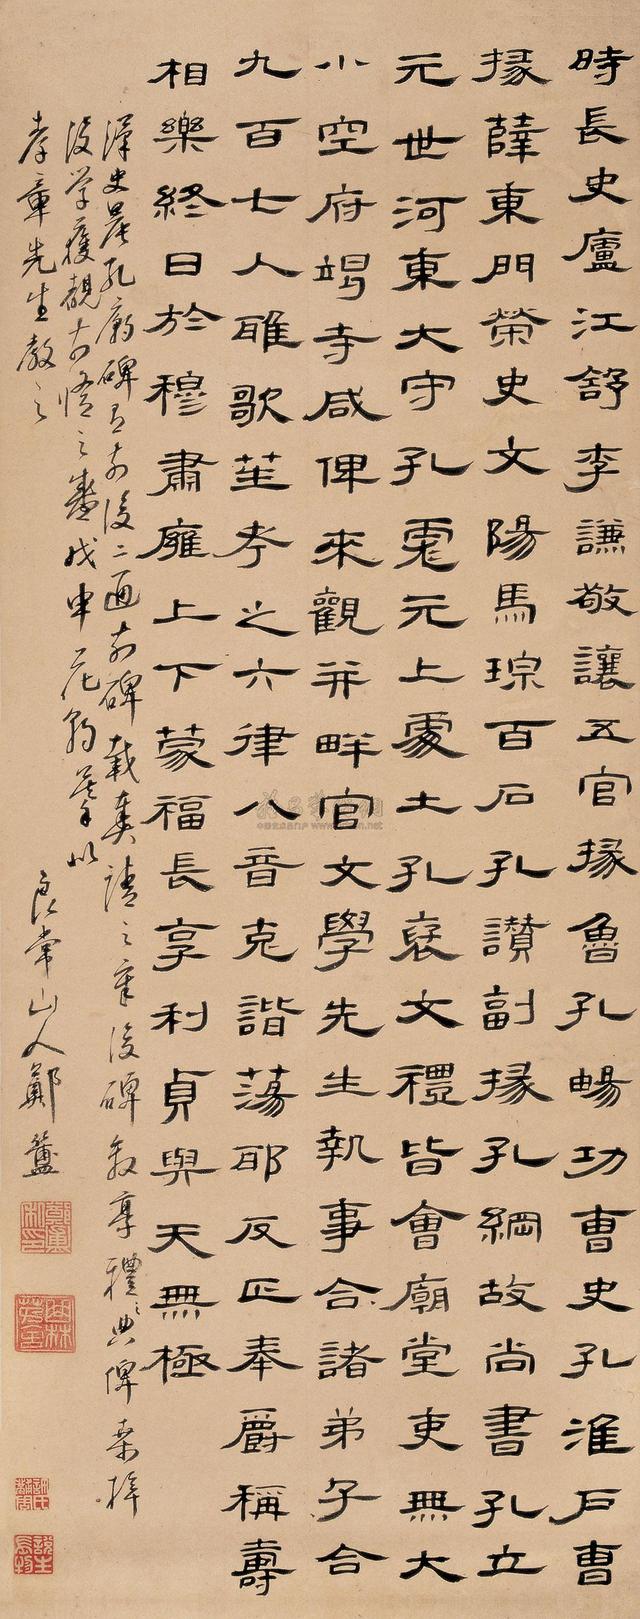 時長史廬江舒李謙敬讓五官掾魯孔暢功曹史孔淮戶曹
掾薛東門榮史文陽馬琮百石孔讃副掾孔綱故尚書孔立
元世河東大守孔彪元上處土孔裦文禮皆會廟堂吏無大
小空府竭寺咸俾來觀并畔官文學先生執事合諸弟子合
九百七人雅歌茥考之六律八音克諧蕩耶反正奉爵稱壽
相樂終日於穆肅廱上下蒙福長享利貞與天無極
漢史晨孔廟碑有前後二通前碑載奏請之章後碑敘享禮之典俾桑梓
後學獲觀
戊申花朝
以
孝章先生教之
良常山人鄭簠